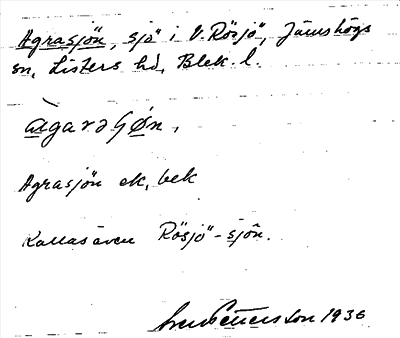 Agrasjön, sjö i V. Rösjö, Jämshögs
sn, Listers hd, Blek. l.
àgarəʃøn,
Agrasjön ek, bek
Kallas även Rösjö-sjön.
Pettersson 1936